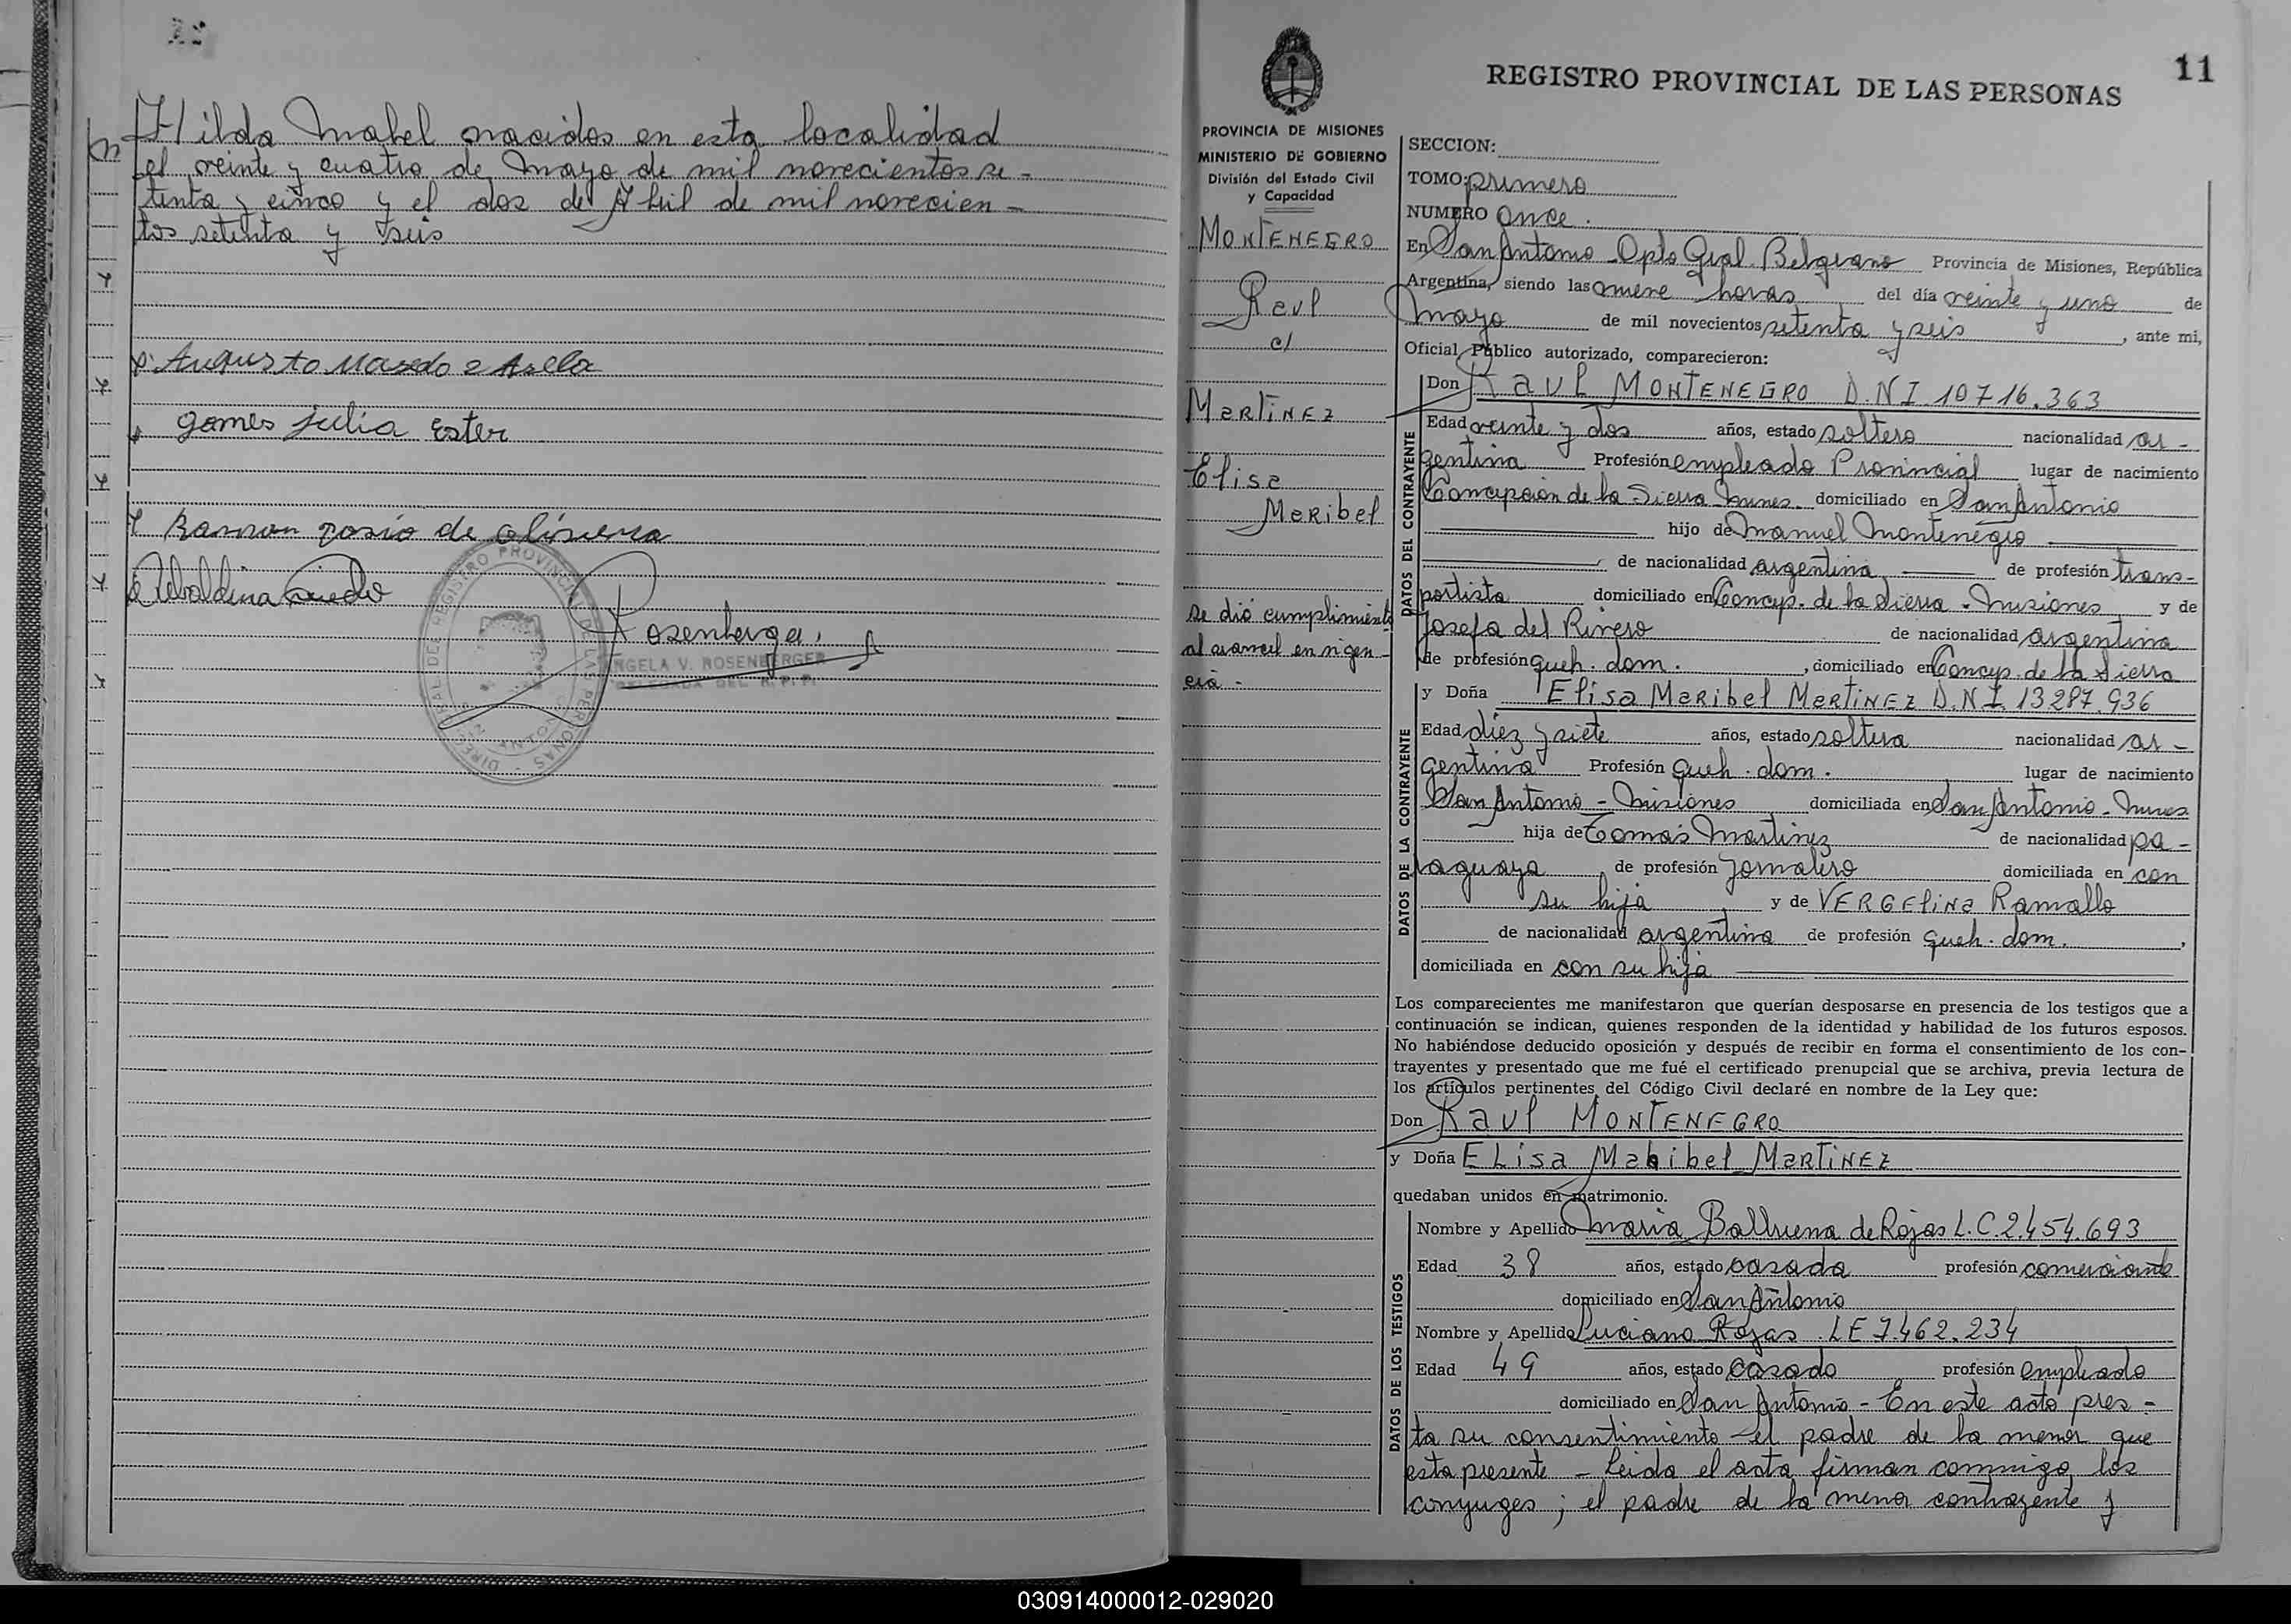 Hilda Mabel nacidos en esta localidad
el veinte y cuatro de Mayo de mil novecientos se-
tenta y cinco y el dos de Abril de mil novecien-
tos setenta y seis
Augusto Macedo
gomes julia Ester
Ramon
Ubaldina
Rosenberger
ANGELA V. ROSENBERGER
DELEGADA DEL R.P.P.
11
REGISTRO PROVINCIAL DE LAS PERSONAS
PROVINCIA DE MISIONES
MINISTERIO DE GOBIERNO
División del Estado Civil
y Capacidad
MONTENEGRO
Raul
c/
MARTINEZ
Elisa
Maribel
se dió cumplimiento
al arancel en vigen-
cia -
SECCION:
TOMO: primero
NUMERO once.
En San Antonio - Dpto Gral. Belgrano Provincia de Misiones, República
Argentina, siendo las nueve horas del día veinte y uno de
mayo de mil novecientos setenta y seis, ante mi,
Oficial Público autorizado, comparecieron:
DATOS DEL CONTRAYENTE
Don Raul MONTENEGRO D.N.I. 10716.363
Edad veinte y dos años, estado soltero nacionalidad ar-
gentina Profesión empleado Provincial lugar de nacimiento
Concepción de la Sierra Mnes. domiciliado en San Antonio
hijo de Manuel Montenegro
de nacionalidad argentina de profesión trans-
portista domiciliado en Concep. de la Sierra - Misiones y de
Josefa del Rivero de nacionalidad argentina
de profesión queh. dom. , domiciliado en Concep. de la Sierra
DATOS DE LA CONTRAYENTE
y Doña Elisa Maribel MARTINEZ D.N.I. 13287.936
Edad diez y siete años, estado soltera nacionalidad ar-
gentina Profesión queh. dom. lugar de nacimiento
San Antonio - Misiones domiciliada en San Antonio - Mnes
hija de Tomás Martinez de nacionalidad pa-
raguaya de profesión Jornalero domiciliada en con
su hija y de VERGELINA Ramallo
de nacionalidad argentina de profesión queh. dom. ,
domiciliada en con su hija
Los comparecientes me manifestaron que querían desposarse en presencia de los testigos que a
continuación se indican, quienes responden de la identidad y habilidad de los futuros esposos.
No habiéndose deducido oposición y después de recibir en forma el consentimiento de los con-
trayentes y presentado que me fué el certificado prenupcial que se archiva, previa lectura de
los artículos pertinentes del Código Civil declaré en nombre de la Ley que:
Don Raul MONTENEGRO
y Doña ELisa Maribel MARTINEZ
quedaban unidos en matrimonio.
DATOS DE LOS TESTIGOS
Nombre y Apellido Maria Balbuena de Rojas L.C. 2.454.693
Edad 38 años, estado casada profesión comerciante
domiciliado en San Antonio
Nombre y Apellido Luciano Rojas LE 7.462.234
Edad 49 años, estado casado profesión empleado
domiciliado en San Antonio - En este acto pres-
ta su consentimiento el padre de la menor que
esta presente - Leida el acta firman conmigo los
conyuges; el padre de la menor contrayente y
030914000012-029020